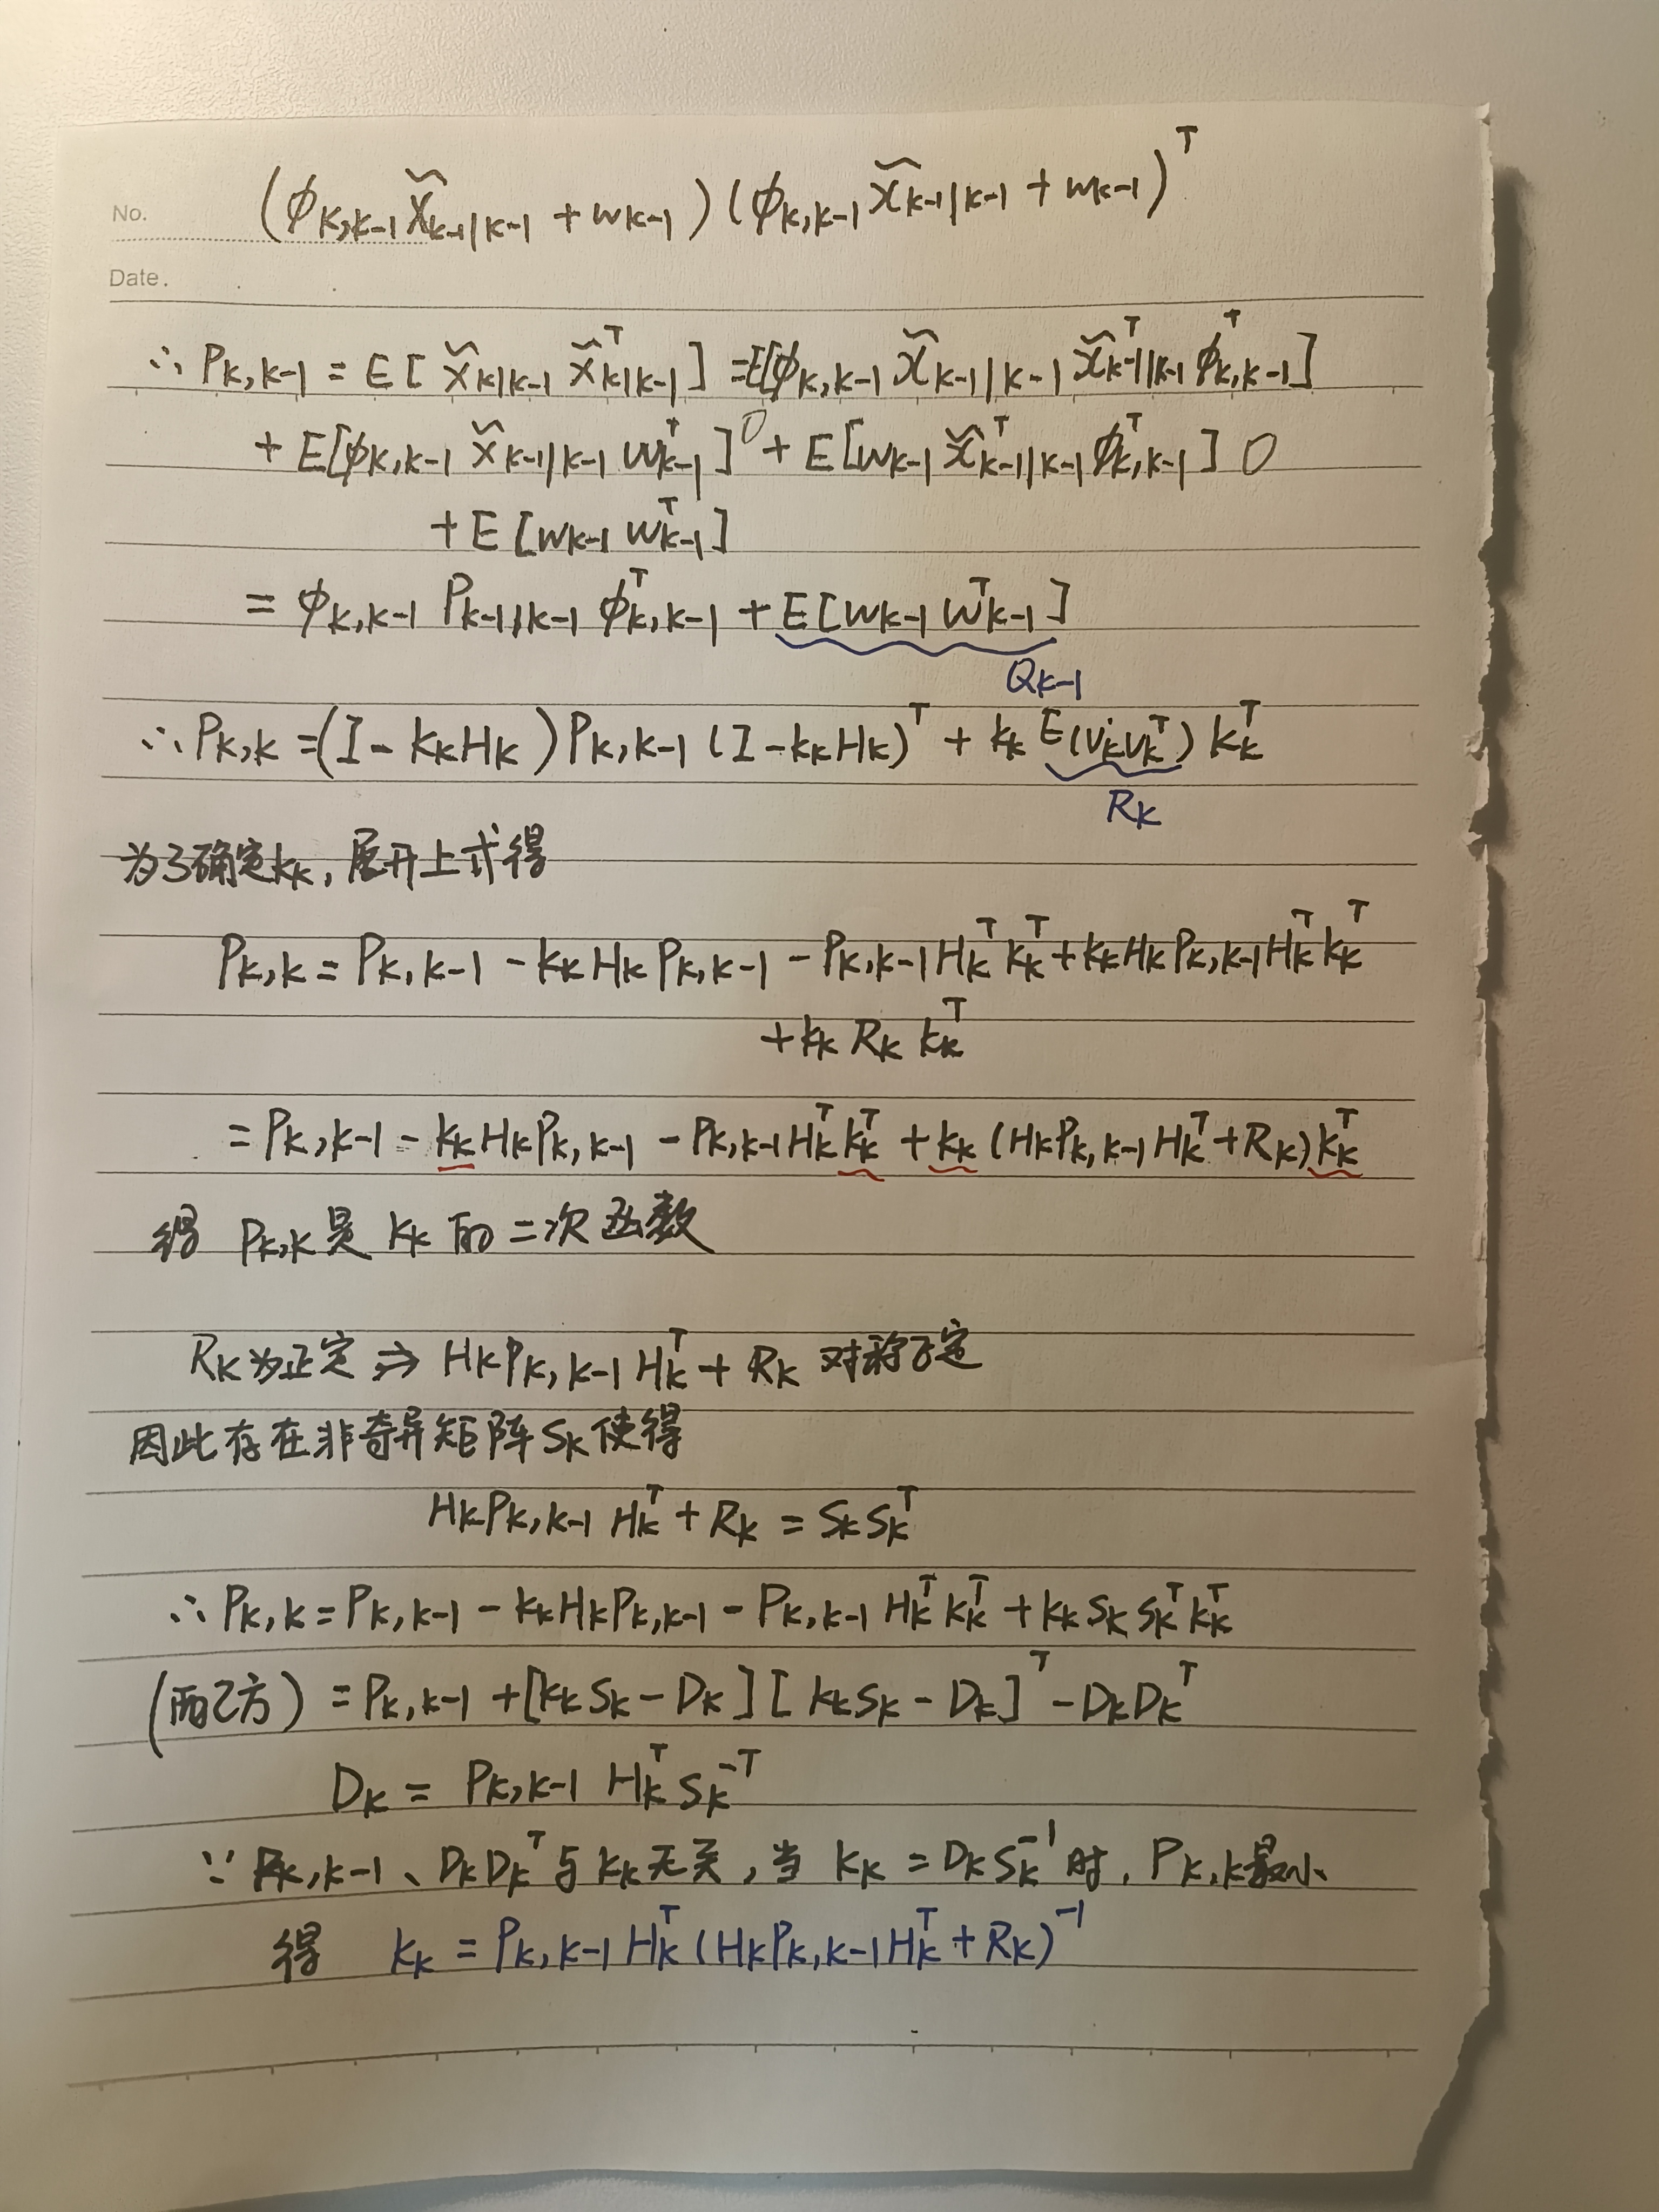 No.
(ϕ_{k,k-1} x̃_{k-1|k-1} + w_{k-1})(ϕ_{k,k-1} x̃_{k-1|k-1} + w_{k-1})^T
Date.
∴ P_{k,k-1} = E[x̃_{k|k-1} x̃^T_{k|k-1}] = E[ϕ_{k,k-1} x̃_{k-1|k-1} x̃^T_{k-1|k-1} ϕ^T_{k,k-1}]
+ E[ϕ_{k,k-1} x̃_{k-1|k-1} w^T_{k-1}] 0 + E[w_{k-1} x̃^T_{k-1|k-1} ϕ^T_{k,k-1}] 0
+ E[w_{k-1} w^T_{k-1}]
= ϕ_{k,k-1} P_{k-1|k-1} ϕ^T_{k,k-1} + E[w_{k-1} w^T_{k-1}]
Q_{k-1}
∴ P_{k,k} = (I - K_k H_k) P_{k,k-1} (I - K_k H_k)^T + K_k E(v_k v_k^T) K_k^T
R_k
为了确定K_k, 展开上式得
P_{k,k} = P_{k,k-1} - K_k H_k P_{k,k-1} - P_{k,k-1} H_k^T K_k^T + K_k H_k P_{k,k-1} H_k^T K_k^T
+ K_k R_k K_k^T
= P_{k,k-1} - K_k H_k P_{k,k-1} - P_{k,k-1} H_k^T K_k^T + K_k (H_k P_{k,k-1} H_k^T + R_k) K_k^T
得 P_{k,k} 是 K_k 的二次函数
R_k 为正定 ⇒ H_k P_{k,k-1} H_k^T + R_k 对称正定
因此存在非奇异矩阵 S_k 使得
H_k P_{k,k-1} H_k^T + R_k = S_k S_k^T
∴ P_{k,k} = P_{k,k-1} - K_k H_k P_{k,k-1} - P_{k,k-1} H_k^T K_k^T + K_k S_k S_k^T K_k^T
(配方) = P_{k,k-1} + [K_k S_k - D_k][K_k S_k - D_k]^T - D_k D_k^T
D_k = P_{k,k-1} H_k^T S_k^{-T}
∵ P_{k,k-1}、D_k D_k^T 与 K_k 无关, 当 K_k = D_k S_k^{-1} 时, P_{k,k} 最小
得 K_k = P_{k,k-1} H_k^T (H_k P_{k,k-1} H_k^T + R_k)^{-1}